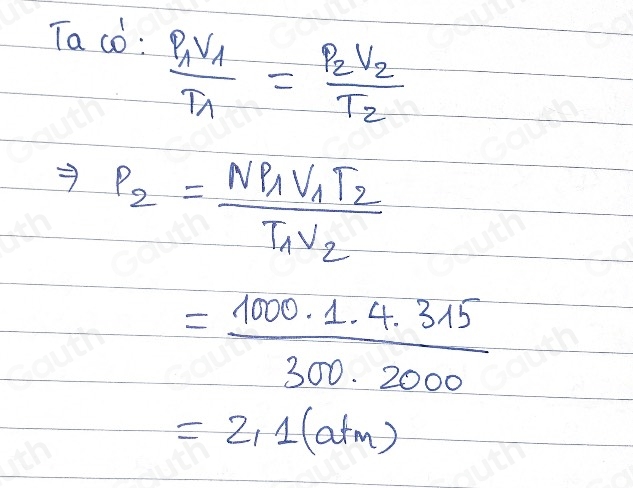 Ta có: P₁V₁/T₁ = P₂V₂/T₂
⇒ P₂ = NP₁V₁T₂/T₁V₂
= 1000.1.4.315/300.2000
= 2,1(atm)